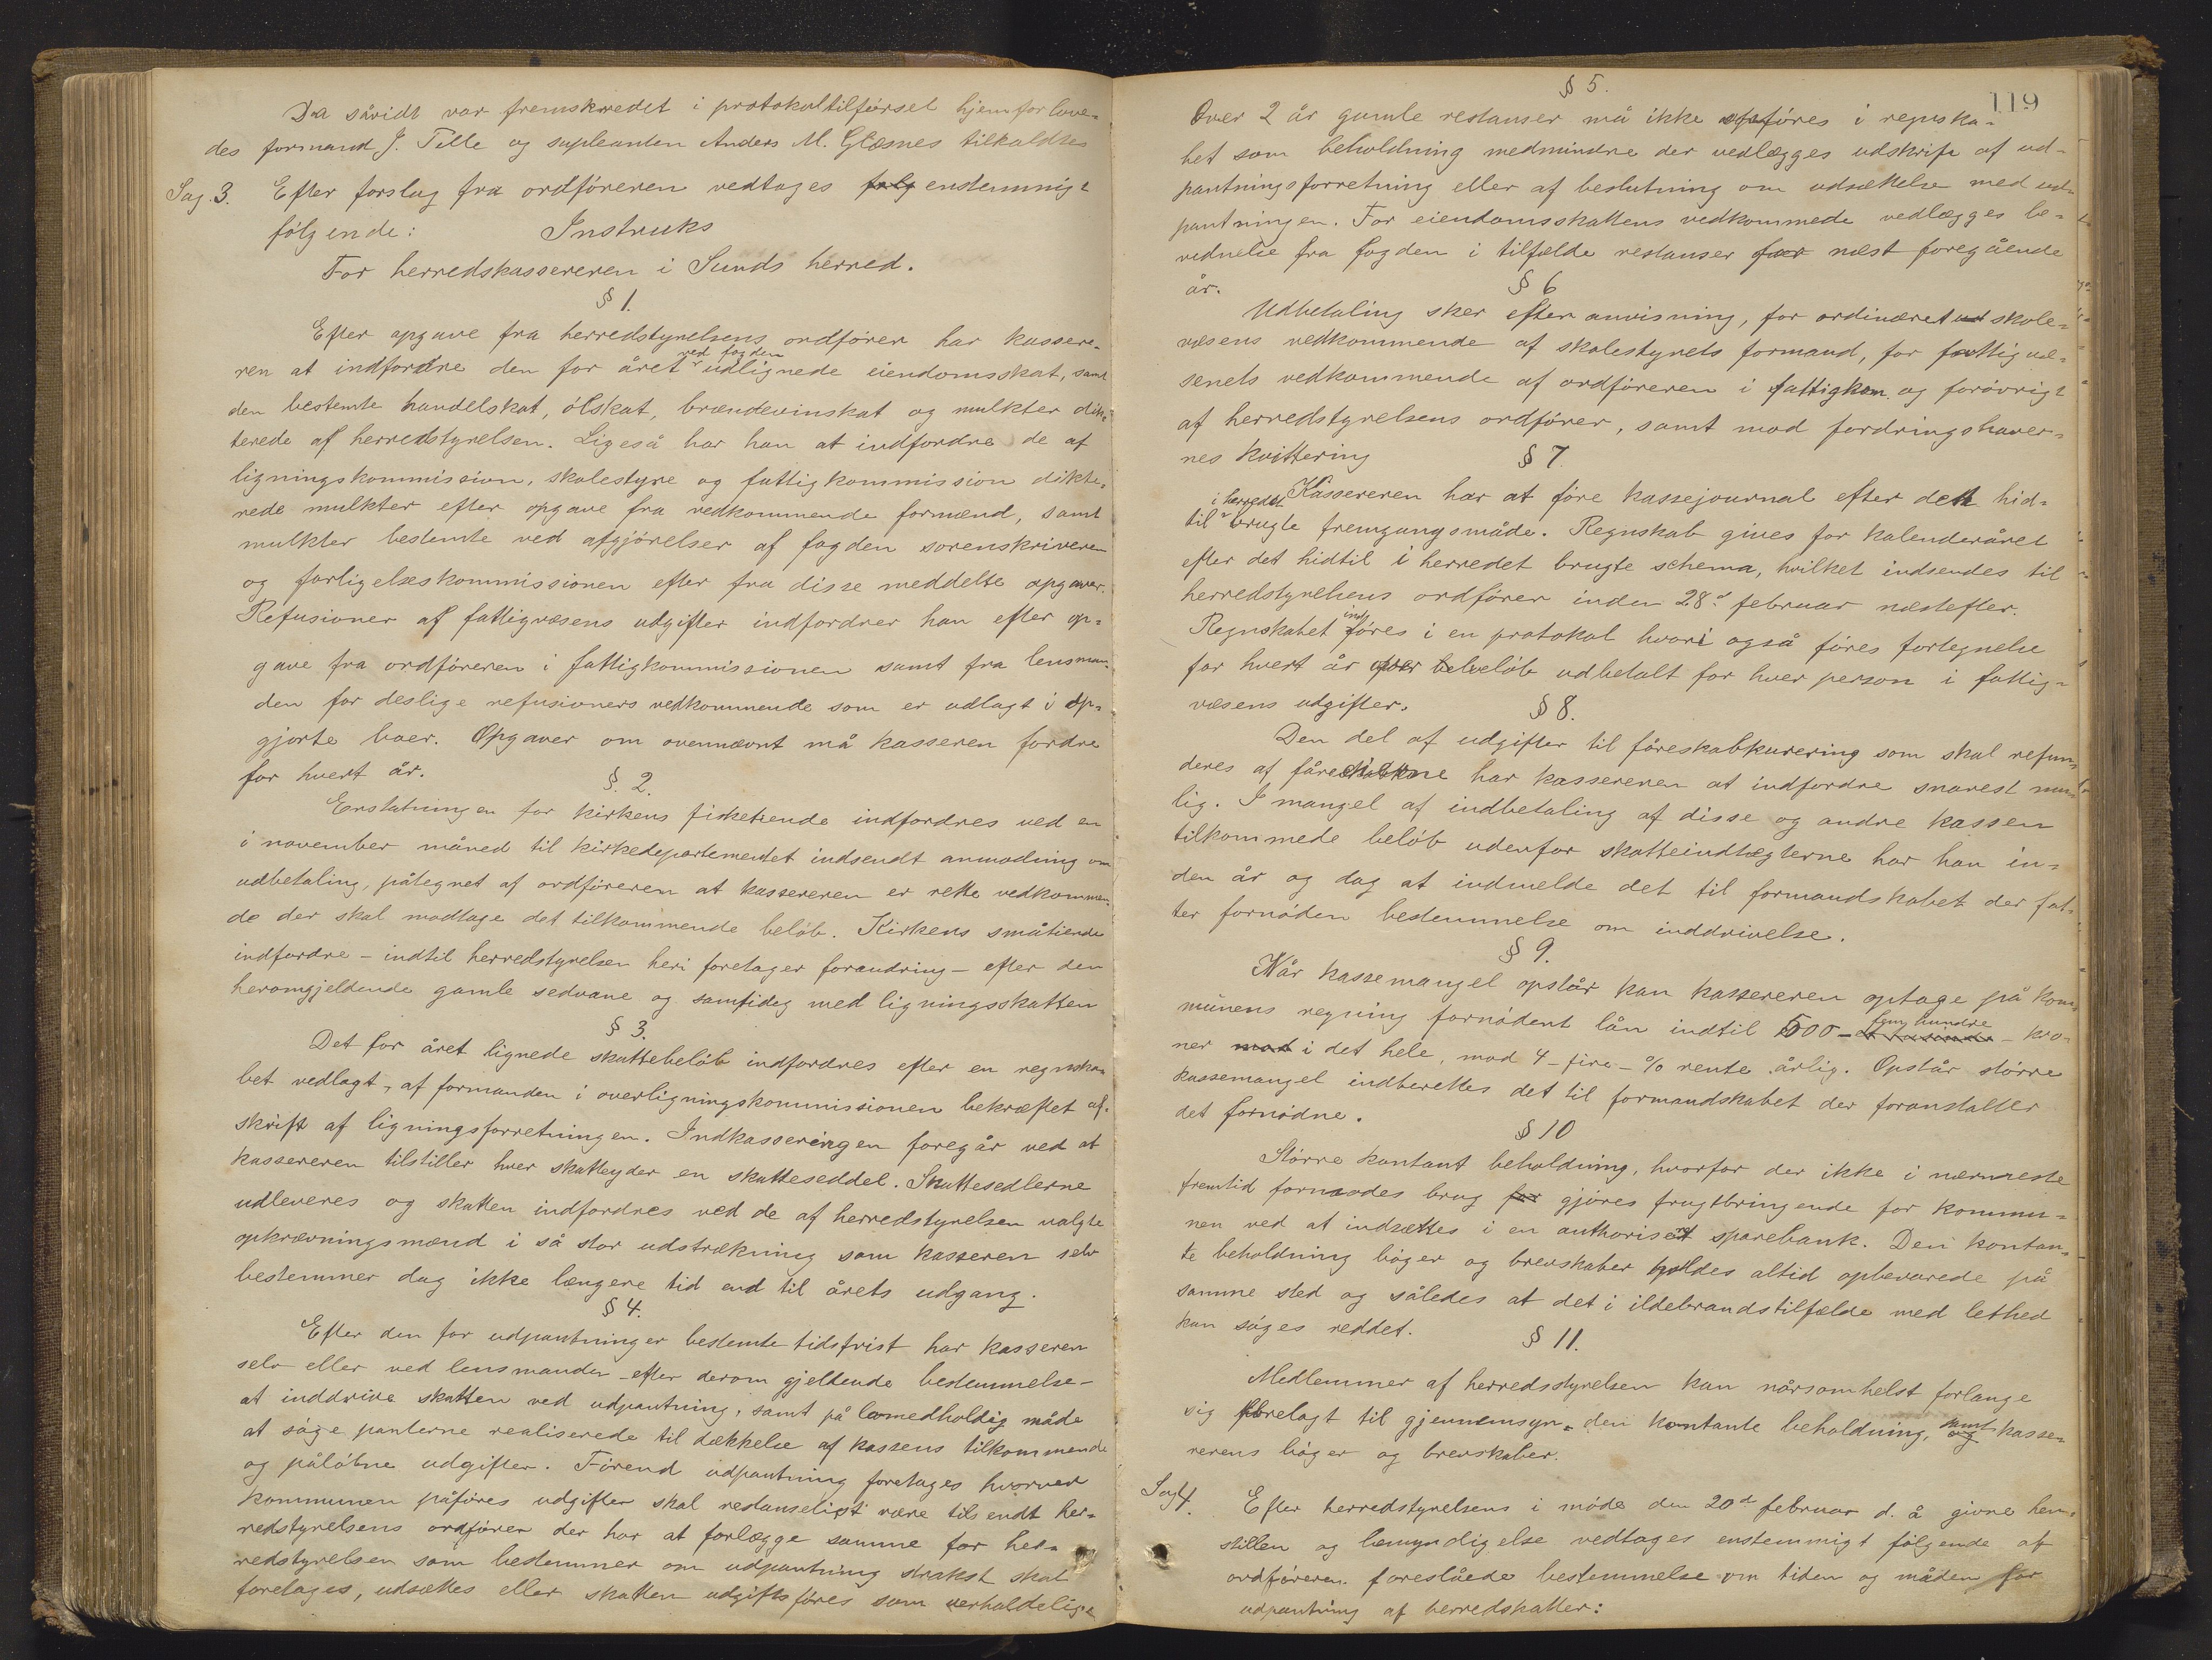 Da såvidt var fremskredet i protokoltilførsel hjemforlove-
des formand J. Telle og supleanten Anders M. Glæsnes tilkaldtes
Sag 3. Efter forslag fra ordføreren vedtages følg enstemmigt
følgende: Instruks
For herredskassereren i Sunds herred.
§ 1.
Efter opgave fra herredstyrelsens ordfører har kassere-
ren at indfordre den for året ved fogden udlignede eiendomsskat, samt
den bestemte handelskat, ølskat, brændevinskat og mulkter dik-
terede af herredstyrelsen. Ligeså har han at indfordre de af
ligningskommission, skolestyre og fattigkommission dikte-
rede mulkter efter opgave fra vedkommende formænd, samt
mulkter bestemte ved afgjørelser af fogden sorenskriveren
og forligelseskommissionen efter fra disse meddelte opgaver.
Refusioner af fattigvæsens udgifter indfordrer han efter op-
gave fra ordføreren i fattigkommissionen samt fra lensman-
den for deslige refusioners vedkommende som er udlagt i op-
gjorte boer. Opgaver om ovennævnt må kasseren fordre
for hvert år.
§. 2.
Erstatningen for kirkens fisketiende indfordres ved en
i november måned til kirkedepartementet indsendt anmodning om
udbetaling, påtegnet af ordføreren at kassereren er rette vedkommen-
de der skal modtage det tilkommende beløb. Kirkens småtiende
indfordre - indtil herredstyrelsen heri foretager forandring - efter den
heromgjeldende gamle sedvane og samtideg med ligningsskatten
§ 3.
Det for året lignede skattebeløb indfordres efter en regnska-
bet vedlagt, af formanden i overligningskommissionen bekræftet af-
skrift af ligningsforretningen. Indkasseringen foregår ved at
kassereren tilstiller hver skatteyder en skatteseddel. Skattesedlerne
udleveres og skatten indfordres ved de af herredstyrelsen valgte
opkrævningsmænd i så stor udstrækning som kasseren selv
bestemmer dog ikke længere tid end til årets udgang.
§ 4.
Efter den for udpantninger bestemte tidsfrist har kasseren
selv eller ved lensmanden - efter derom gjeldende bestemmelse -
at inddrive skatten ved udpantning, samt på lovmedholdig måde
at søge panterne realiserede til dækkelse af kassens tilkommende
og påløbne udgifter. Førend udpantning foretages hvorved
kommunen påføres udgifter skal restanselist være tilsendt her-
redstyrelsens ordfører der har at forlægge samme for her-
redstyrelsen som bestemmer om udpantning strakst skal
foretages, udsættes eller skatten udgiftsføres som uerholdelige
119
§ 5.
Over 2 år gamle restanser må ikke opføres i regnska-
bet som beholdning medmindre der vedlægges udskrift af ud-
pantningsforretning eller af beslutning om udsættelse med ud-
pantningen. For eiendomsskattens vedkommede vedlægges be-
vidnelse fra fogden i tilfælde restanser for næst foregående
år.
§ 6
Udbetaling sker efter anvisning, for ordinæret ud skole-
væsens vedkommende af skolestyrets formand, for fattigvæ-
senets vedkommende af ordføreren i fattigkom. og forøvrigt
af herredstyrelsens ordfører, samt mod fordringshaver-
nes kvittering
§ 7.
Kassereren har at føre kassejournal efter den hid-
til i herredet brugte fremgangsmåde. Regnskab gives for kalenderåret
efter det hidtil i herredet brugte schema, hvilket indsendes til
herredstyrelsens ordfører inden 28d februar næstefter.
Regnskabet indføres i en protokol hvori også føres fortegnelse
for hvert år over beløb udbetalt for hver person i fattig-
væsens udgifter.
§ 8.
Den del af udgifter til føreskabkurering som skal refun-
deres af fåreeierne har kassereren at indfordre snarest mu-
lig. I mangel af indbetaling af disse og andre kassen
tilkommede beløb udenfor skatteindtægterne har han in-
den år og dag at indmelde det til formandskabet der fat-
ter fornøden bestemmelse om inddrivelse.
§ 9.
Når kassemangel opstår kan kassereren optage på kom-
munens regning fornødent lån indtil 500 - fem hundre - kro-
ner mod i det hele, mod 4 - fire - % rente årlig. Opstår større
kassemangel indberettes det til formandskabet der foranstalter
det fornødne.
§ 10
Større kontant beholdning, hvorfor der ikke i nærmeste
fremtid formodes brug for gjøres frugtbringende for kommu-
nen ved at indsættes i en authoriseret sparebank. Den kontan-
te beholdning bøger og brevskaber holdes altid opbevarede på
samme sted og således at det i ildebrandstilfælde med lethed
kan søges reddet.
§ 11.
Medlemmer af herredsstyrelsen kan nårsomhelst forlange
sig forelagt til gjennemsyn - den kontante beholdning, samt kasse-
rerens bøger og brevskaber.
Sag 4. Efter herredstyrelsens i møde den 20d februar d. å givne hen-
stillen og bemyndigelse vedtages enstemmigt følgende af
ordføreren foreslåede bestemmelse om tiden og måden for
udpantning af herredskatter: